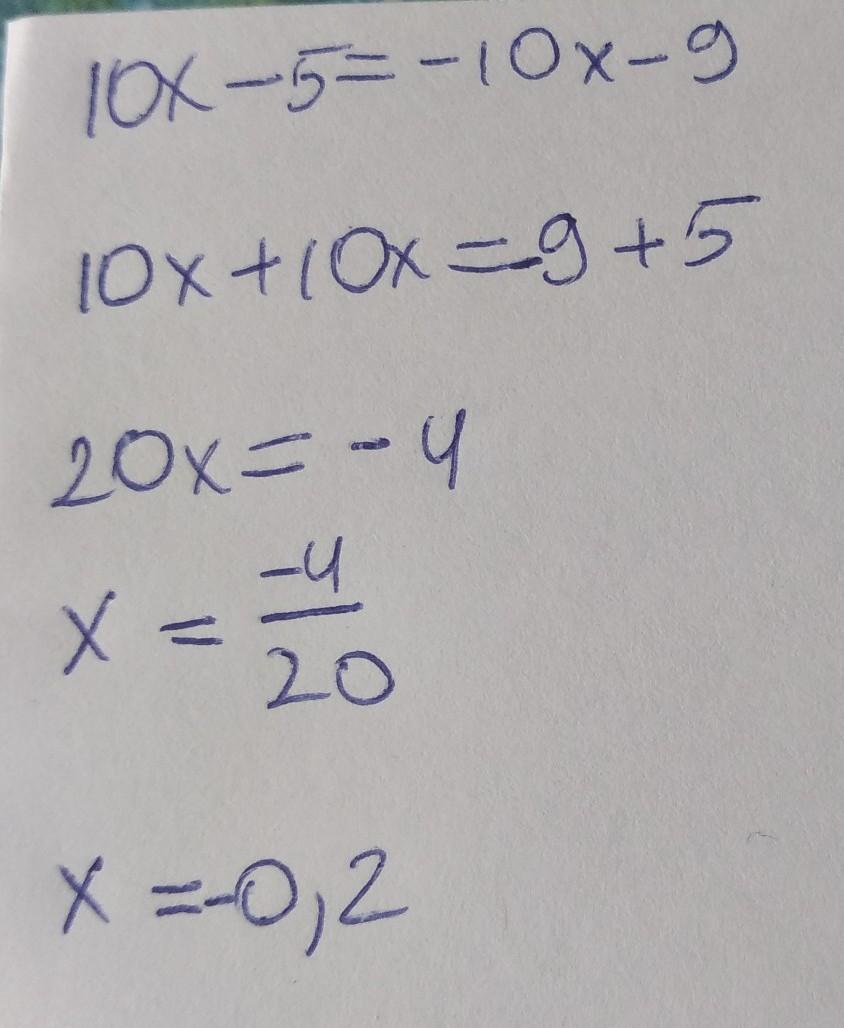 10x-5=-10x-9
10x+10x=-9+5
20x=-4
x=-4/20
x=-0,2